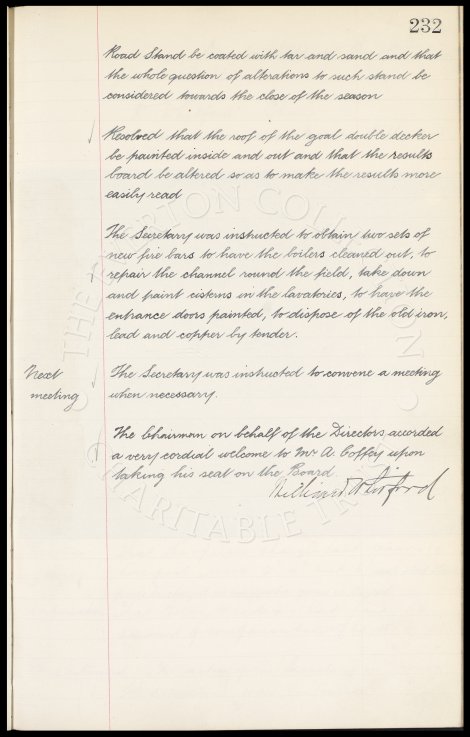 232
Road Stand be coated with tar and sand and that
the whole question of alterations to such stand be
considered towards the close of the season
Resolved that the roof of the goal double decker
be painted inside and out and that the results
board be altered so as to make the results more
easily read
The Secretary was instructed to obtain two sets of
new fire bars to have the boilers cleaned out, to
repair the channel round the field, take down
and paint cisterns in the lavatories, to have the
entrance doors painted, to dispose of the old iron,
lead and copper by tender.
Next
meeting
The Secretary was instructed to convene a meeting
when necessary.
The Chairman on behalf of the Directors accorded
a very cordial welcome to Mr A Coffey upon
taking his seat on the Board
THE EVERTON COLLECTION
CHARITABLE TRUST